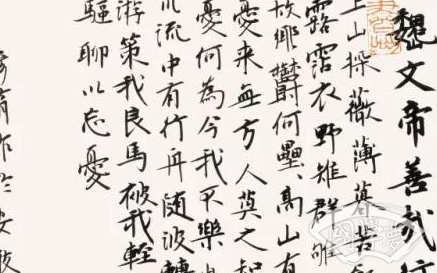 魏文帝善哉行
上山採薇薄暮苦
露霑衣野雉群雊
故鄉鬱何壘、高山有
憂來無方人莫之知
憂何為今我不樂
川流中有行舟隨波轉
游策我良馬被我輕
驅聊以忘憂
作於安